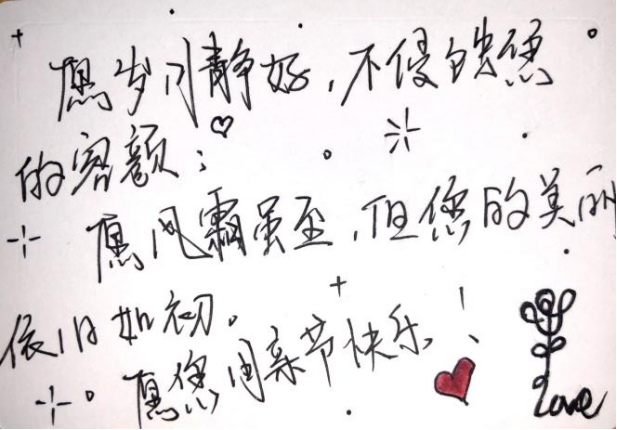 愿岁月静好，不侵蚀您
的容颜；
愿风霜虽至，但您的美丽
依旧如初。
愿您母亲节快乐！
love